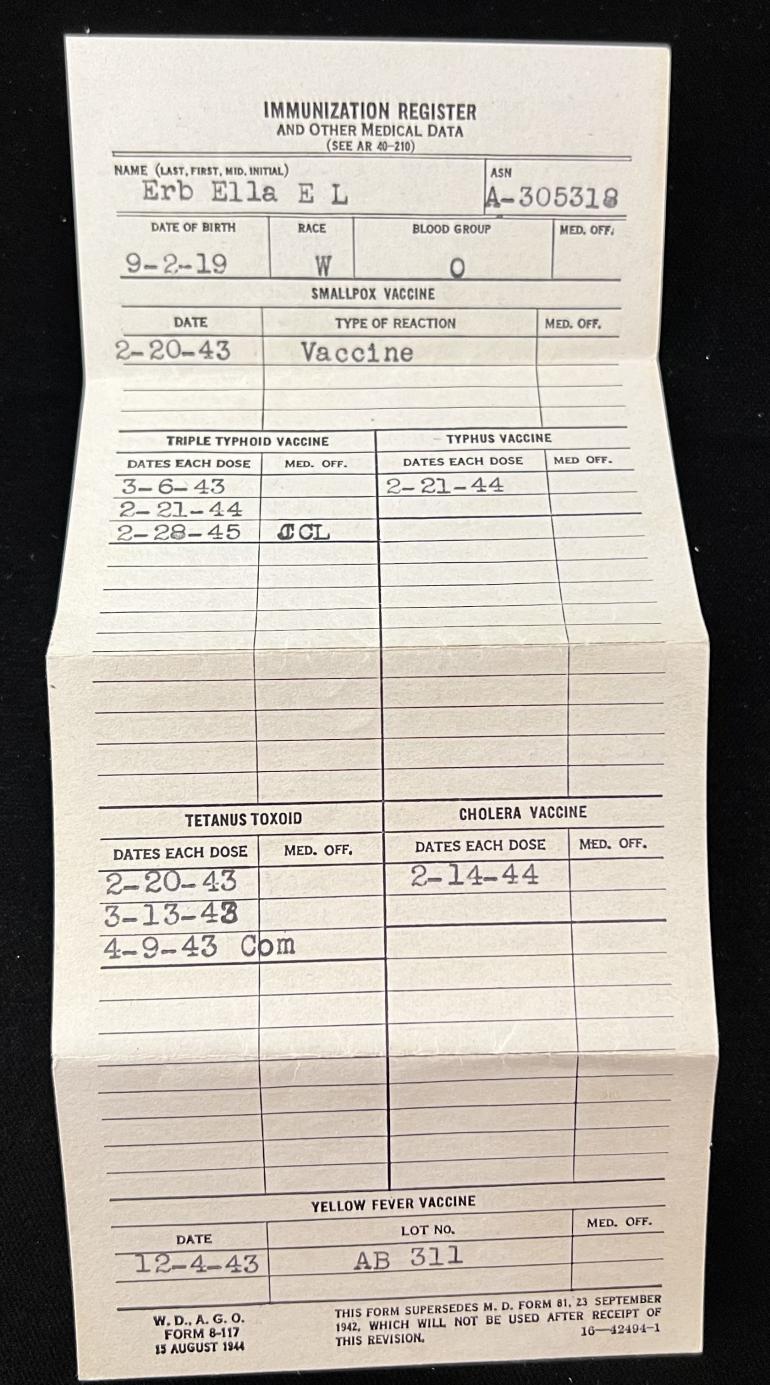 IMMUNIZATION REGISTER
AND OTHER MEDICAL DATA
(SEE AR 40-210)
NAME (LAST, FIRST, MID. INITIAL) ASN
Erb Ella E L A-305318
DATE OF BIRTH RACE BLOOD GROUP MED. OFF.
9-2-19 W O
SMALLPOX VACCINE
DATE TYPE OF REACTION MED. OFF.
2-20-43 Vaccine
TRIPLE TYPHOID VACCINE TYPHUS VACCINE
DATES EACH DOSE MED. OFF. DATES EACH DOSE MED OFF.
3-6-43 2-21-44
2-21-44
2-28-45 JCL
TETANUS TOXOID CHOLERA VACCINE
DATES EACH DOSE MED. OFF. DATES EACH DOSE MED. OFF.
2-20-43 2-14-44
3-13-43
4-9-43 Com
YELLOW FEVER VACCINE
DATE LOT NO. MED. OFF.
12-4-43 AB 311
W. D., A. G. O.
FORM 8-117
15 AUGUST 1944
THIS FORM SUPERSEDES M. D. FORM 81, 23 SEPTEMBER
1942, WHICH WILL NOT BE USED AFTER RECEIPT OF
THIS REVISION. 16—42494-1